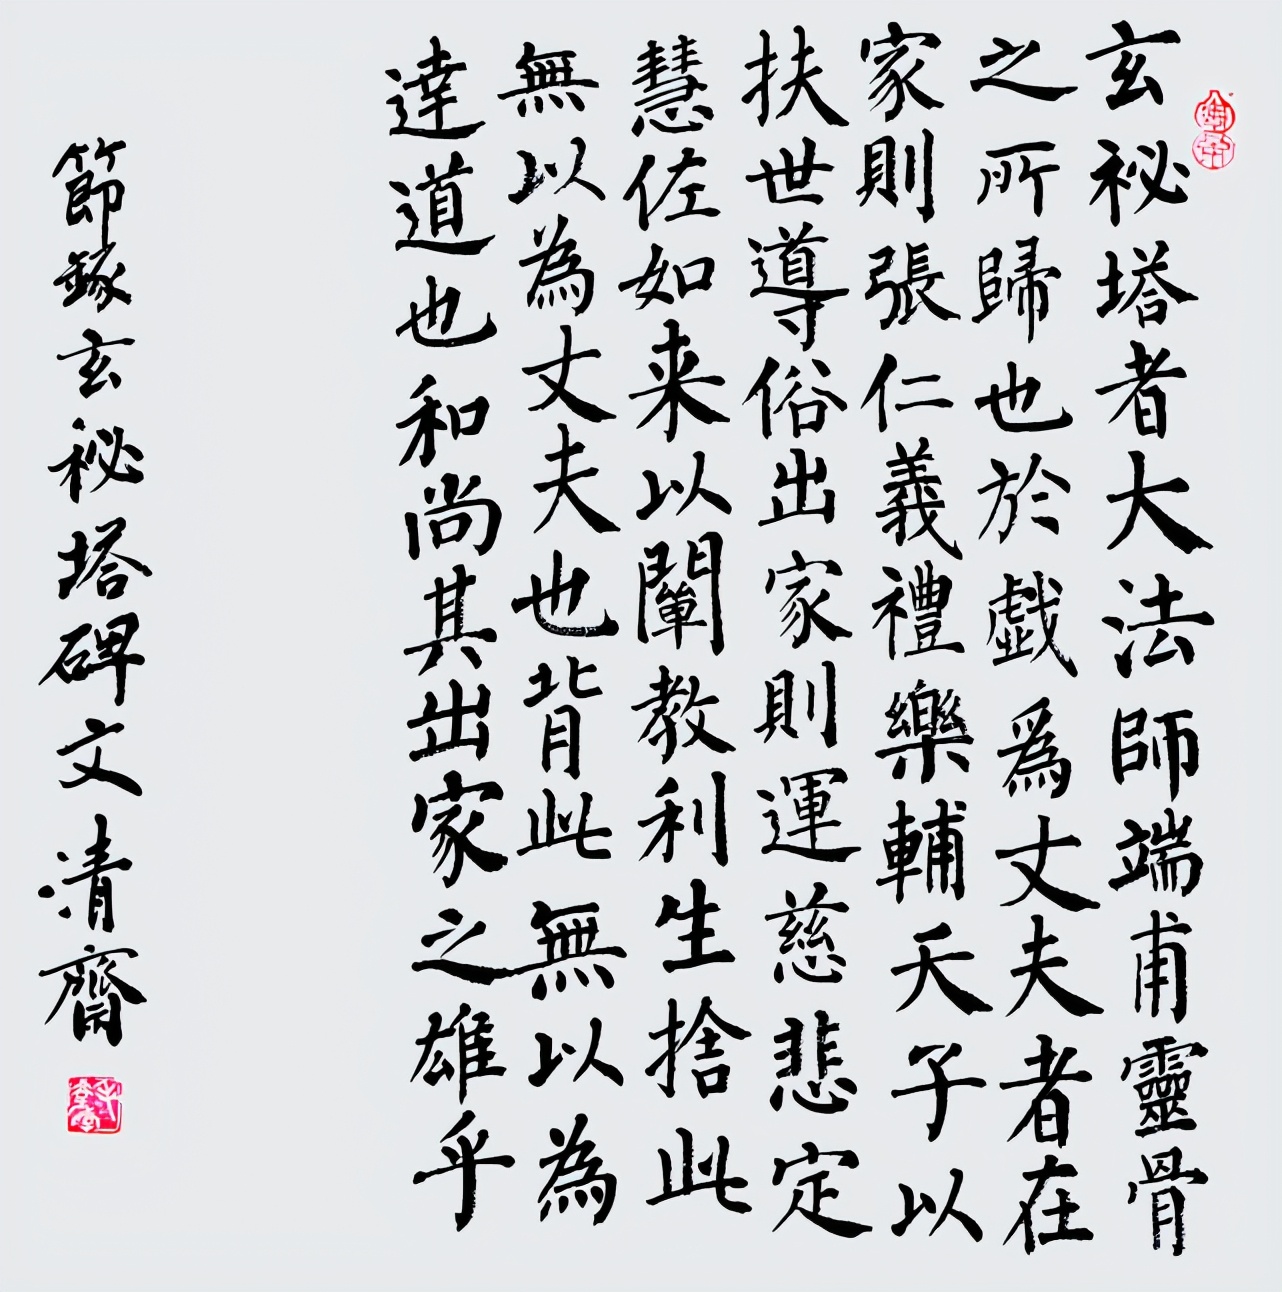 玄祕塔者大法師端甫靈骨
之所歸也於戯爲丈夫者在
家則張仁義禮樂輔天子以
扶世導俗出家則運慈悲定
慧佐如来以闡教利生捨此
無以為丈夫也背此無以為
達道也和尚其出家之雄乎
節錄玄祕塔碑文清齋